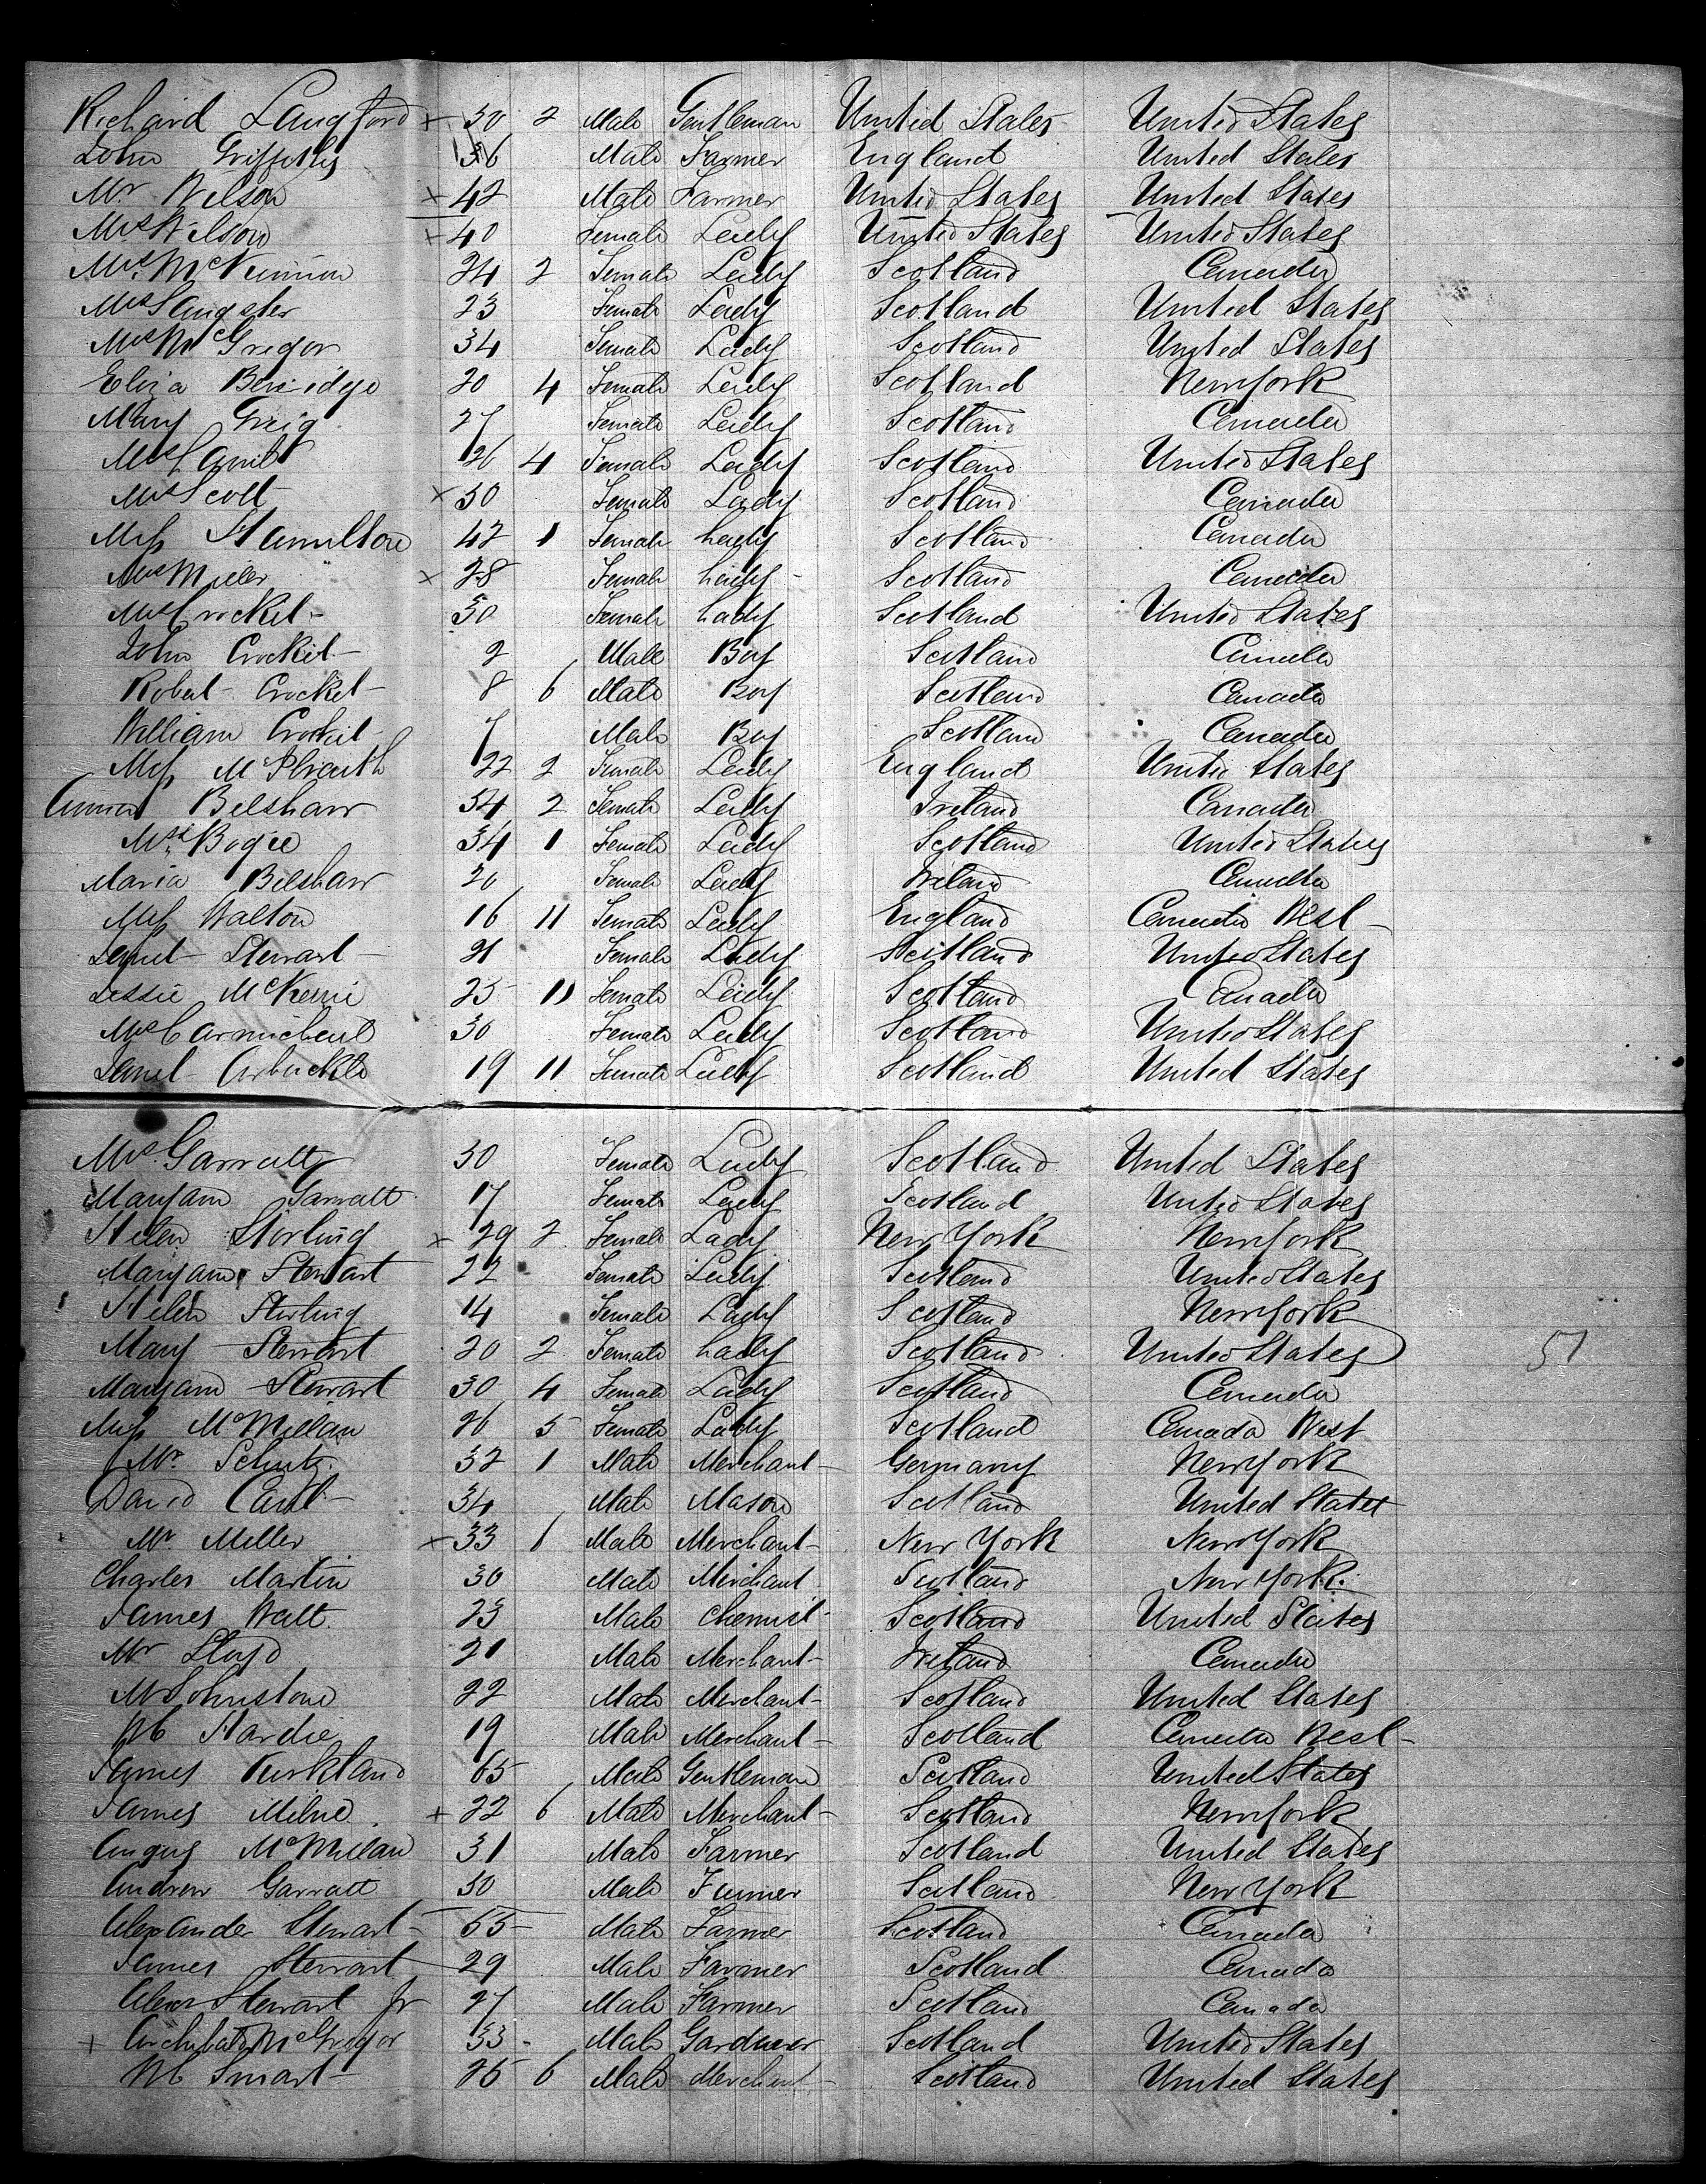 Richard Langford × 30 2 Male Gentleman United States United States
John Griffiths 36 Male Farmer England United States
Mr Wilson × 42 Male Farmer United States United States
Mrs Wilson + 40 Female Lady United States United States
Mrs 24 2 Female Lady Scotland Canada
Mrs Sangster 23 Female Lady Scotland United States
Mrs McGregor 34 Female Lady Scotland United States
Eliza 20 4 Female Lady Scotland New York
Mary Greig 27 Female Lady Scotland Canada
Mrs 26 4 Female Lady Scotland United States
Mrs Scott × 30 Female Lady Scotland Canada
Miss Hamilton 42 1 Female Lady Scotland Canada
Mrs Miller × 28 Female Lady Scotland Canada
Mrs Crocket 30 Female Lady Scotland United States
John Crocket 9 Male Boy Scotland Canada
Robert Crocket 8 6 Male Boy Scotland Canada
William Crocket 7 Male Boy Scotland Canada
Miss 22 2 Female Lady England United States
Belshaw 54 2 Female Lady Ireland Canada
Mrs Bogie 34 1 Female Lady Scotland United States
Maria Belshaw 20 Female Lady Ireland Canada
Miss Walton 16 11 Female Lady England Canada West
Janet Stewart 21 Female Lady Scotland United States
Jessie McKenzie 25 11 Female Lady Scotland Canada
Mrs Carmichael 30 Female Lady Scotland United States
Janet Arbuckle 19 11 Female Lady Scotland United States
Mrs Garratt 30 Female Lady Scotland United States
Maryann Garratt 17 Female Lady Scotland United States
Helen Stirling × 29 2 Female Lady New York New York
Maryann Stewart 22 Female Lady Scotland United States
Helen Sterling 14 Female Lady Scotland New York
Mary Stewart 20 2 Female Lady Scotland United States 51
Maryann Stewart 30 4 Female Lady Scotland Canada
Miss McMillan 26 5 Female Lady Scotland Canada West
Mr Schutz 32 1 Male Merchant Germany New York
David 34 Male Mason Scotland United States
Mr Miller × 33 1 Male Merchant New York New York
Charles Martin 30 Male Merchant Scotland New York
James Watt 23 Male Chemist Scotland United States
Mr Lloyd 21 Male Merchant Ireland Canada
Mr Johnstone 22 Male Merchant Scotland United States
Mr Hardie 19 Male Merchant Scotland Canada West
James Kirkland 65 Male Gentleman Scotland United States
James Milne + 22 6 Male Merchant Scotland New York
Angus McMillan 31 Male Farmer Scotland United States
Andrew Garratt 50 Male Farmer Scotland New York
Alexander Stewart 55 Male Farmer Scotland Canada
James Stewart 29 Male Farmer Scotland Canada
Alexr Stewart Jr 27 Male Farmer Scotland Canada
+ Archibald McGregor 33 Male Gardner Scotland United States
Mr Smart 25 6 Male Merchant Scotland United States